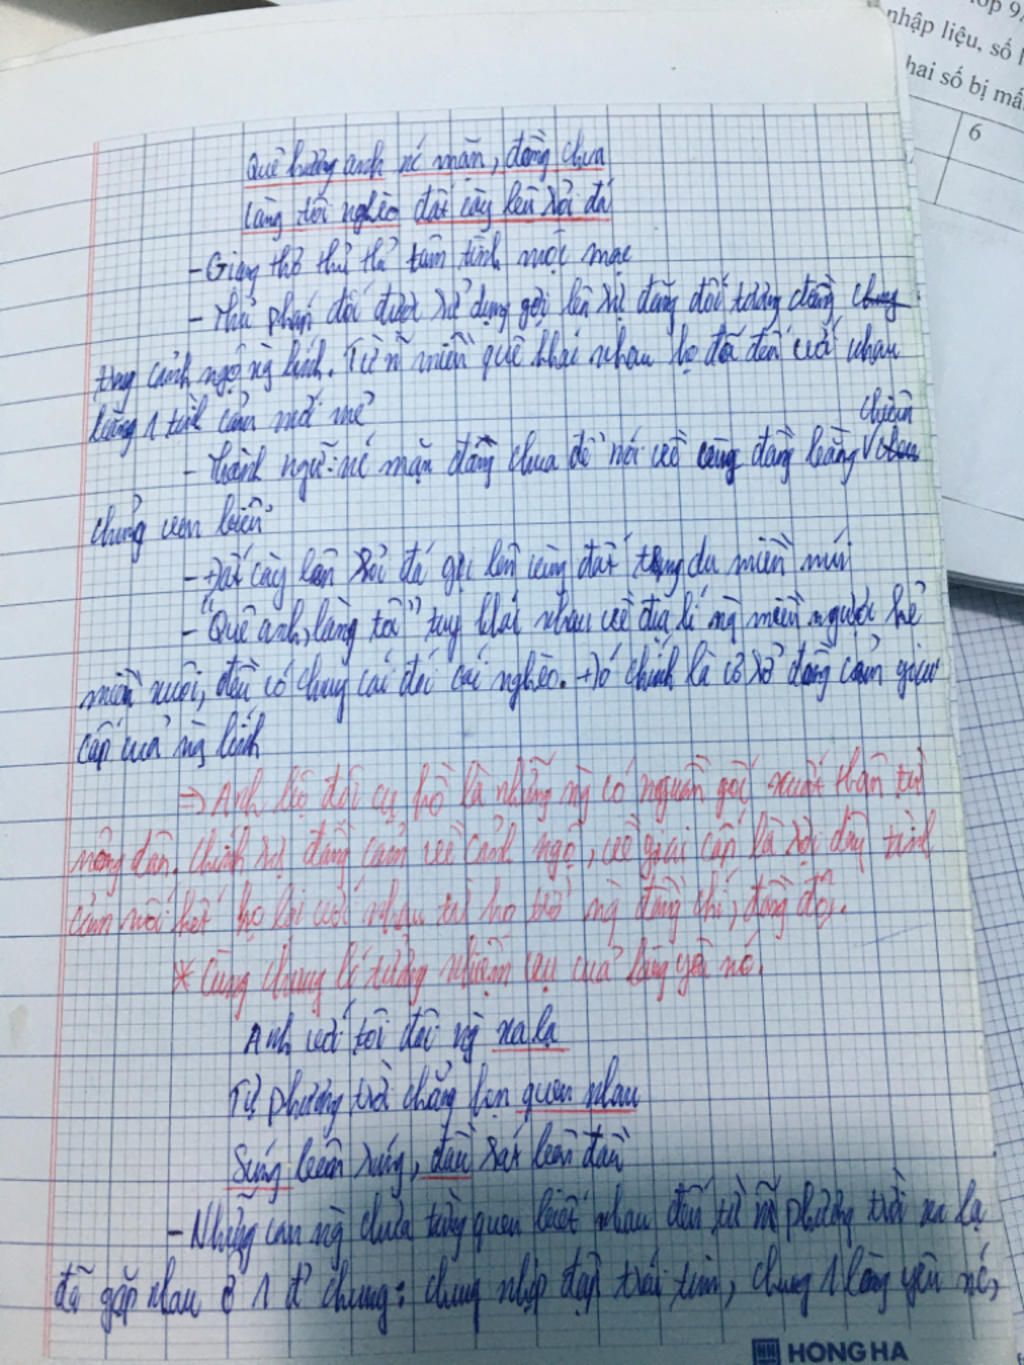 lớp 9
nhập liệu, số
hai số bị mấ
6
Quê hương anh nc mặn, đồng chua
Làng tôi nghèo đất cày lên sỏi đá
- Giọng thơ thủ thỉ tâm tình mộc mạc
- Thủ pháp đối được sử dụng gợi lên sự đăng đối tương đồng chung
trong cảnh ngộ ng lính. Từ n~ miền quê khác nhau họ đã đến với nhau
bằng 1 tình cảm mới mẻ
chiêm
- Thành ngữ: nc mặn đồng chua để nói về vùng đồng bằng
chũng ven biển
- Đất cày lên sỏi đá gợi lên vùng đất trung du miền núi
- "Quê anh, làng tôi" tuy khác nhau về địa lí ng miền ngược kẻ
miền xuôi, đều có chung cái đói cái nghèo. Đó chính là cơ sở đồng cảm giai
cấp của ng lính
=> Anh bộ đội cụ hồ là những ng có nguồn gốc xuất thân từ
nông dân. Chính sự đồng cảm về cảnh ngộ, về giai cấp là sợi dây tình
cảm nối kết họ lại với nhau từ họ trở ng đồng chí, đồng đội.
* Cùng chung lí tưởng nhiệm vụ của lòng yêu nc.
Anh với tôi đôi ng xa lạ
Tự phương trời chẳng hẹn quen nhau
Súng bên súng, đầu sát bên đầu
- Những con ng chưa từng quen biết nhau đến từ n~ phương trời xa lạ
đã gặp nhau ở 1 đ' chung: chung nhịp đập trái tim, chung 1 lòng yêu nc,
HONG HA